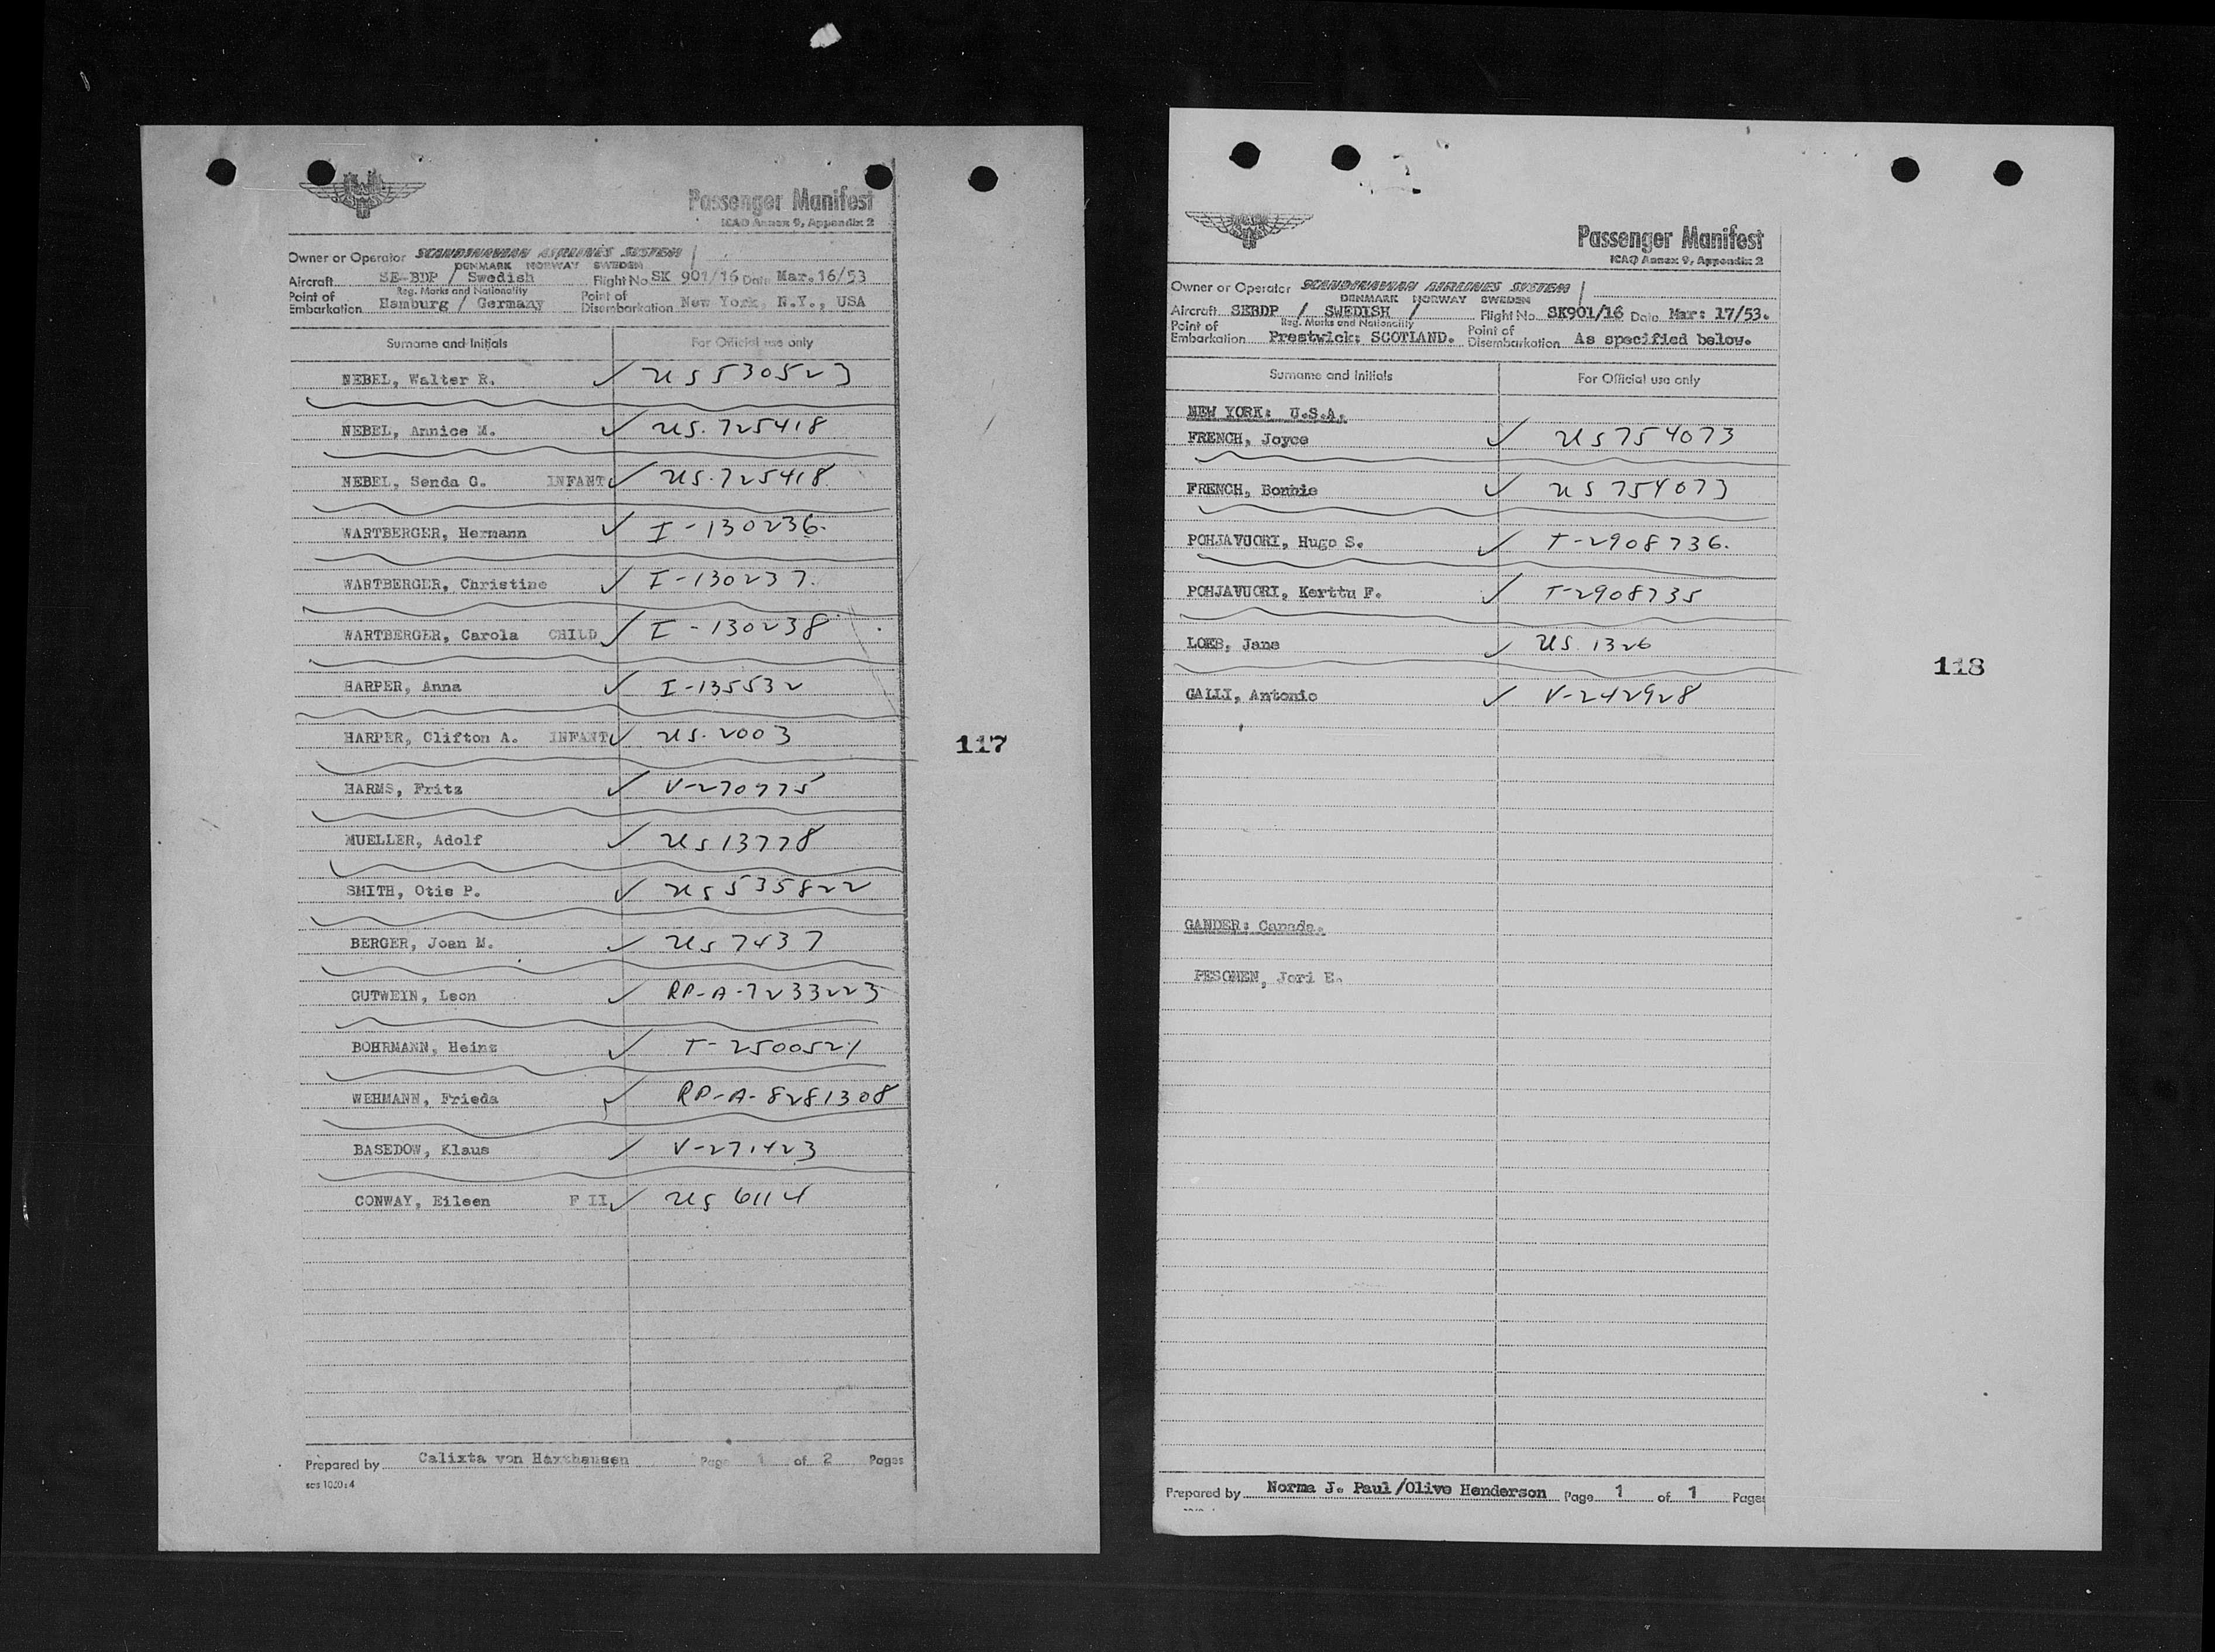 Passenger Manifest
ICAO Annex 9, Appendix 2
Owner or Operator SCANDINAVIAN AIRLINES SYSTEM
DENMARK NORWAY SWEDEN
Aircraft SE-BDP / Swedish Flight No. SK 901/16 Date Mar.16/53
Reg. Marks and Nationality
Point of Embarkation Hamburg / Germany Point of Disembarkation New York, N.Y., USA
Surname and Initials For Official use only
NEBEL, Walter R. ✓ US 530523
NEBEL, Annice M. ✓ US. 725418
NEBEL, Senda G. INFANT ✓ US. 725418
WARTBERGER, Hermann ✓ I-130236.
WARTBERGER, Christine ✓ I-130237.
WARTBERGER, Carola CHILD ✓ I-130238
HARPER, Anna ✓ I-135532
HARPER, Clifton A. INFANT ✓ US. 2003
HARMS, Fritz ✓ V-270775
MUELLER, Adolf ✓ US 13778
SMITH, Otis P. ✓ US 535822
BERGER, Joan M. ✓ US 7437
GUTWEIN, Leon ✓ RP-A-7233223
BOHRMANN, Heinz ✓ T-2500521
WEHMANN, Frieda ✓ RP-A-8281308
BASEDOW, Klaus ✓ V-271423
CONWAY, Eileen F II ✓ US 6114
117
Prepared by Calixta von Haxthausen Page 1 of 2 Pages
Passenger Manifest
ICAO Annex 9, Appendix 2
Owner or Operator SCANDINAVIAN AIRLINES SYSTEM
DENMARK NORWAY SWEDEN
Aircraft SEBDP / SWEDISH / Flight No. SK901/16 Date Mar: 17/53.
Reg. Marks and Nationality
Point of Embarkation Prestwick: SCOTLAND. Point of Disembarkation As specified below.
Surname and Initials For Official use only
NEW YORK: U.S.A.
FRENCH, Joyce ✓ US 754073
FRENCH, Bonnie ✓ US 754073
POHJAVUORI, Hugo S. ✓ T-2908736.
POHJAVUORI, Kerttu F. ✓ T-2908735
LOEB, Jane ✓ US. 1326
GALLI, Antonio ✓ V-242928
118
GANDER: Canada.
PESONEN, Jori E.
Prepared by Norma J. Paul/Olive Henderson Page 1 of 1 Pages